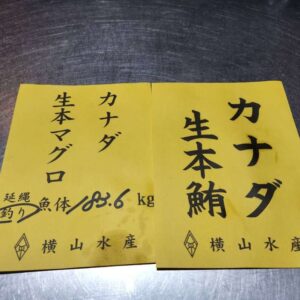 カナダ
生本マグロ
延縄
釣り
魚体 183.6 kg
横山水産
カナダ
生本鮪
横山水産